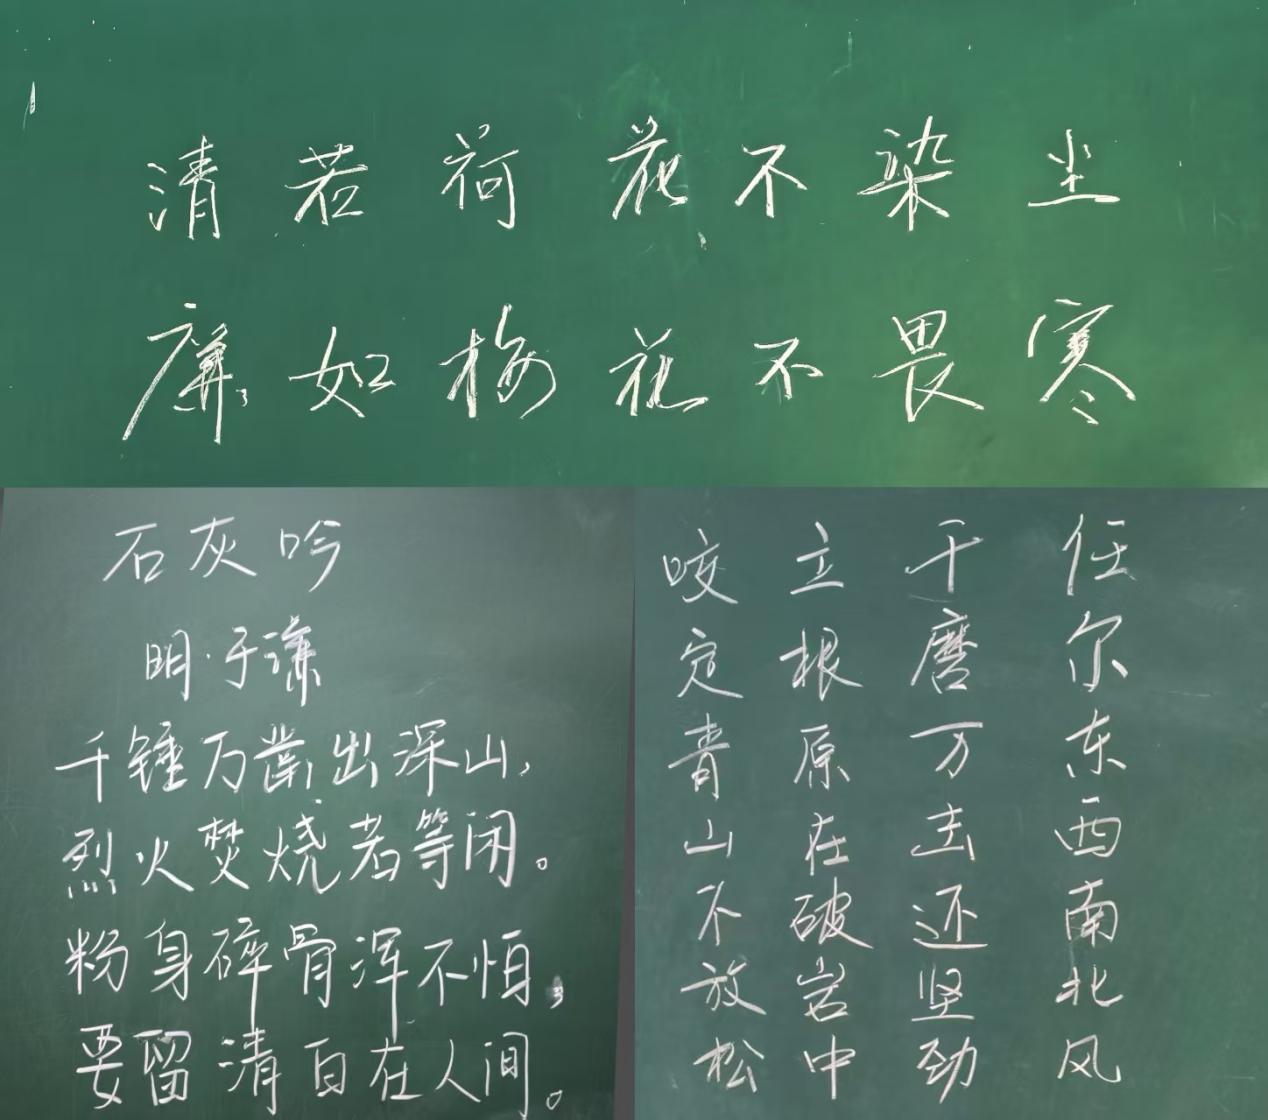 清若荷花不染尘
廉如梅花不畏寒
石灰吟
明·于谦
千锤万凿出深山,
烈火焚烧若等闭。
粉身碎骨浑不怕,
要留清白在人间。
咬定青山不放松
立根原在破岩中
千磨万击还坚劲
任尔东西南北风